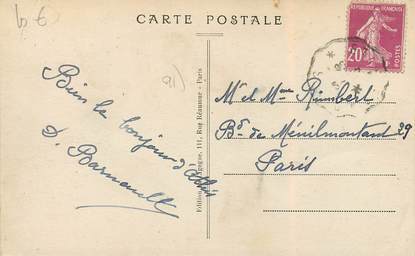 CARTE POSTALE
REPUBLIQUE FRANÇAISE
20c
POSTES
Bien le bonjour d'
D. Barnault
Edition 111, Rue Réaumur - Paris
(91)
Mr et Mme Rimbert
Bd de Ménilmontant 29
Paris